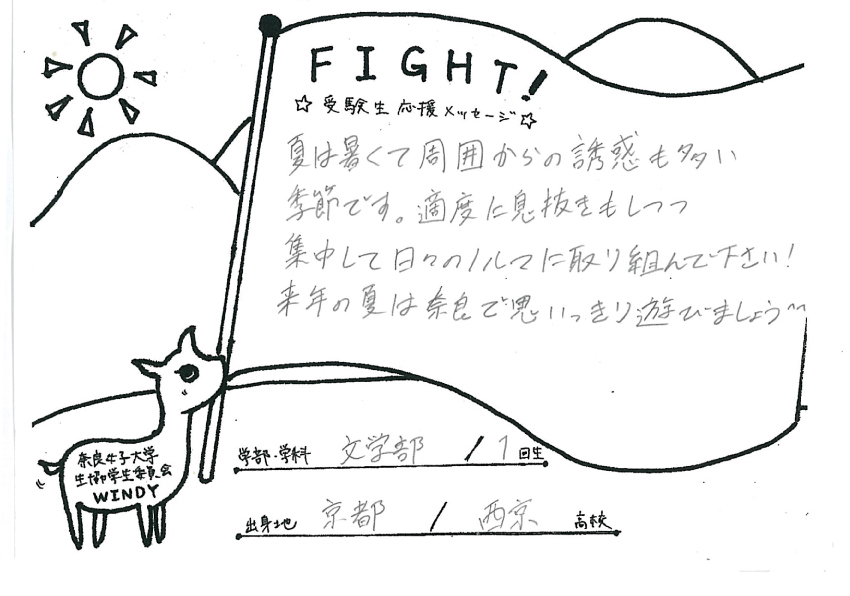 FIGHT!
☆受験生応援メッセージ☆
夏は暑くて周囲からの誘惑も多い
季節です。適度に息抜きもしつつ
集中して日々のノルマに取り組んで下さい!
来年の夏は奈良で思いっきり遊びましょう〜
学部・学科 文学部 / 1回生
出身地 京都 / 西京 高校
奈良女子大学
生協学生委員会
WINDY